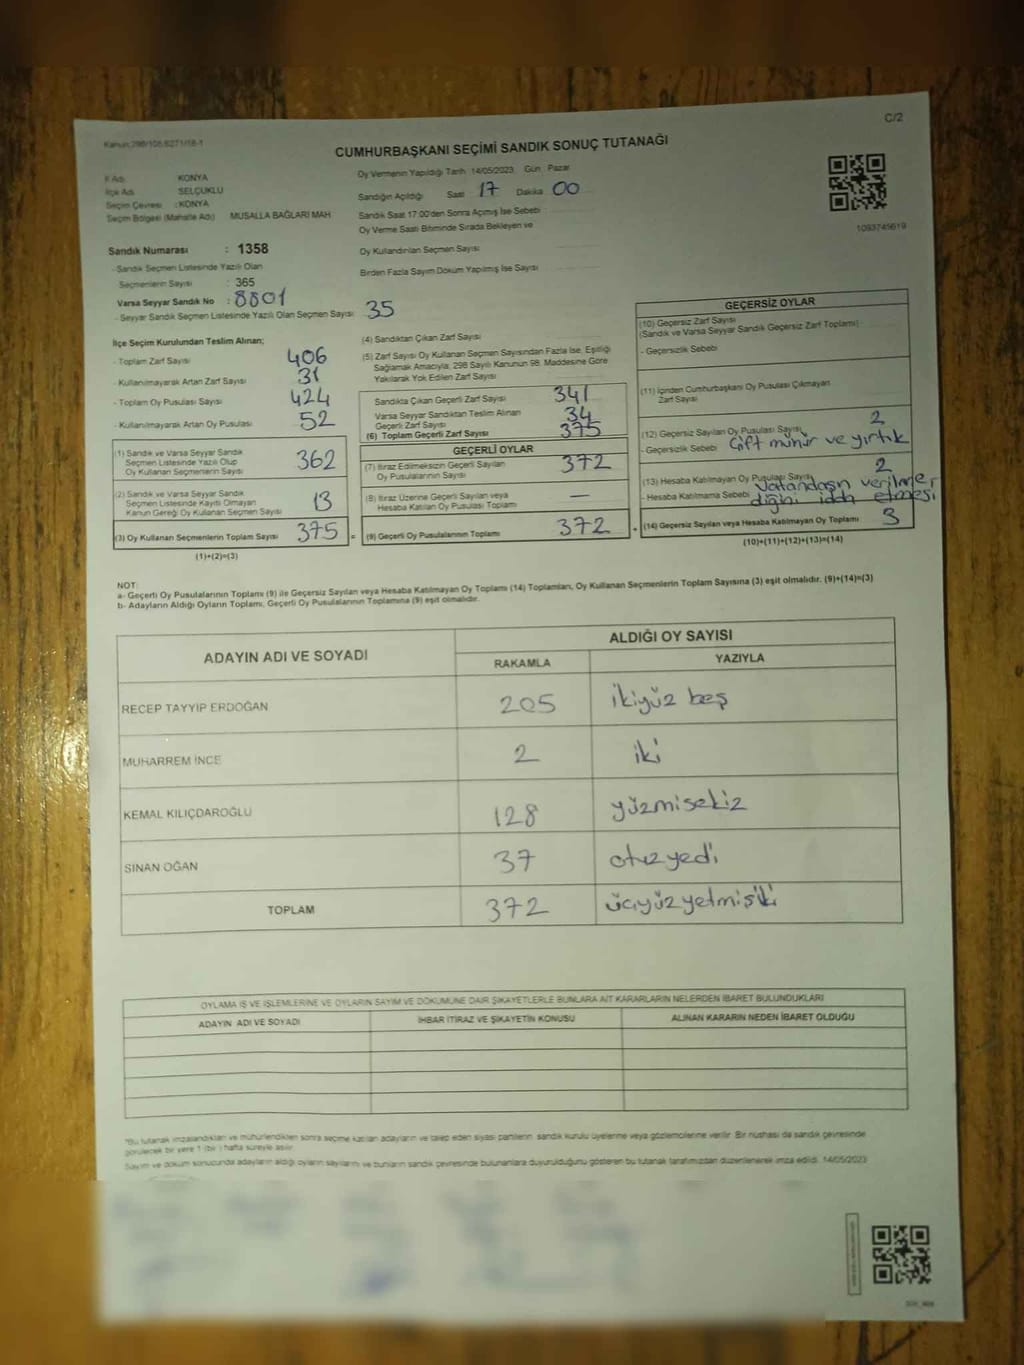 Kanun:298/105,6271/18-1
C/2
CUMHURBAŞKANI SEÇİMİ SANDIK SONUÇ TUTANAĞI
İl Adı KONYA
İlçe Adı SELÇUKLU
Seçim Çevresi : KONYA
Seçim Bölgesi (Mahalle Adı) MUSALLA BAĞLARI MAH
Sandık Numarası : 1358
- Sandık Seçmen Listesinde Yazılı Olan
Seçmenlerin Sayısı : 365
Varsa Seyyar Sandık No : 8801
- Seyyar Sandık Seçmen Listesinde Yazılı Olan Seçmen Sayısı: 35
Oy Vermenin Yapıldığı Tarih 14/05/2023 Gün Pazar
Sandığın Açıldığı Saat 17 Dakika 00
Sandık Saat 17:00'den Sonra Açımış İse Sebebi
Oy Verme Saati Bitiminde Sırada Bekleyen ve
Oy Kullandırılan Seçmen Sayısı
Birden Fazla Sayım Döküm Yapılmış İse Sayısı
1093745619
İlçe Seçim Kurulundan Teslim Alınan;
- Toplam Zarf Sayısı 406
- Kullanılmayarak Artan Zarf Sayısı 31
- Toplam Oy Pusulası Sayısı 424
- Kullanılmayarak Artan Oy Pusulası 52
(1) Sandık ve Varsa Seyyar Sandık
Seçmen Listesinde Yazılı Olup
Oy Kullanan Seçmenlerin Sayısı 362
(2) Sandık ve Varsa Seyyar Sandık
Seçmen Listesinde Kayıtlı Olmayan
Kanun Gereği Oy Kullanan Seçmen Sayısı 13
(3) Oy Kullanan Seçmenlerin Toplam Sayısı 375 =
(1)+(2)=(3)
(4) Sandıktan Çıkan Zarf Sayısı
(5) Zarf Sayısı Oy Kullanan Seçmen Sayısından Fazla İse, Eşitliği
Sağlamak Amacıyla; 298 Sayılı Kanunun 98. Maddesine Göre
Yakılarak Yok Edilen Zarf Sayısı
Sandıkta Çıkan Geçerli Zarf Sayısı 341
Varsa Seyyar Sandıktan Teslim Alınan
Geçerli Zarf Sayısı 34
(6) Toplam Geçerli Zarf Sayısı 375
GEÇERLİ OYLAR
(7) İtiraz Edilmeksizin Geçerli Sayılan
Oy Pusulalarının Sayısı 372
(8) İtiraz Üzerine Geçerli Sayılan veya
Hesaba Katılan Oy Pusulası Toplamı —
(9) Geçerli Oy Pusulalarının Toplamı 372 +
GEÇERSİZ OYLAR
(10) Geçersiz Zarf Sayısı
(Sandık ve Varsa Seyyar Sandık Geçersiz Zarf Toplamı)
- Geçersizlik Sebebi
(11) İçinden Cumhurbaşkanı Oy Pusulası Çıkmayan
Zarf Sayısı
(12) Geçersiz Sayılan Oy Pusulası Sayısı 2
- Geçersizlik Sebebi Çift mühür ve yırtık
(13) Hesaba Katılmayan Oy Pusulası Sayısı 2
- Hesaba Katılmama Sebebi Vatandaşın verilme
diğini iddia etmesi
(14) Geçersiz Sayılan veya Hesaba Katılmayan Oy Toplamı 3
(10)+(11)+(12)+(13)=(14)
NOT:
a- Geçerli Oy Pusulalarının Toplamı (9) ile Geçersiz Sayılan veya Hesaba Katılmayan Oy Toplamı (14) Toplamları, Oy Kullanan Seçmenlerin Toplam Sayısına (3) eşit olmalıdır. (9)+(14)=(3)
b- Adayların Aldığı Oyların Toplamı, Geçerli Oy Pusulalarının Toplamına (9) eşit olmalıdır.
ADAYIN ADI VE SOYADI
ALDIĞI OY SAYISI
RAKAMLA YAZIYLA
RECEP TAYYİP ERDOĞAN 205 ikiyüz beş
MUHARREM İNCE 2 iki
KEMAL KILIÇDAROĞLU 128 yüzmisekiz
SİNAN OĞAN 37 otuzyedi
TOPLAM 372 üçyüzyetmişiki
OYLAMA İŞ VE İŞLEMLERİNE VE OYLARIN SAYIM VE DÖKÜMÜNE DAİR ŞİKAYETLERLE BUNLARA AİT KARARLARIN NELERDEN İBARET BULUNDUKLARI
ADAYIN ADI VE SOYADI İHBAR İTİRAZ VE ŞİKAYETİN KONUSU ALINAN KARARIN NEDEN İBARET OLDUĞU
*Bu tutanak imzalandıktan ve mühürlendikten sonra seçime katılan adayların ve talep eden siyasi partilerin sandık kurulu üyelerine veya gözlemcilerine verilir. Bir nüshası da sandık çevresinde
görülecek bir yere 1 (bir ) hafta süreyle asılır.
Sayım ve döküm sonucunda adayların aldığı oyların sayılarını ve bunların sandık çevresinde bulunanlara duyurulduğunu gösteren bu tutanak tarafımızdan düzenlenerek imza edildi. 14/05/2023